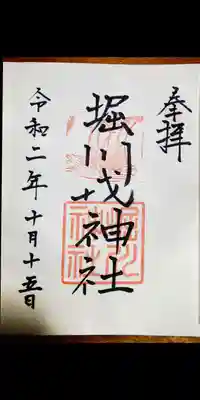 奉拝
堀川戎神社
令和二年十月十五日